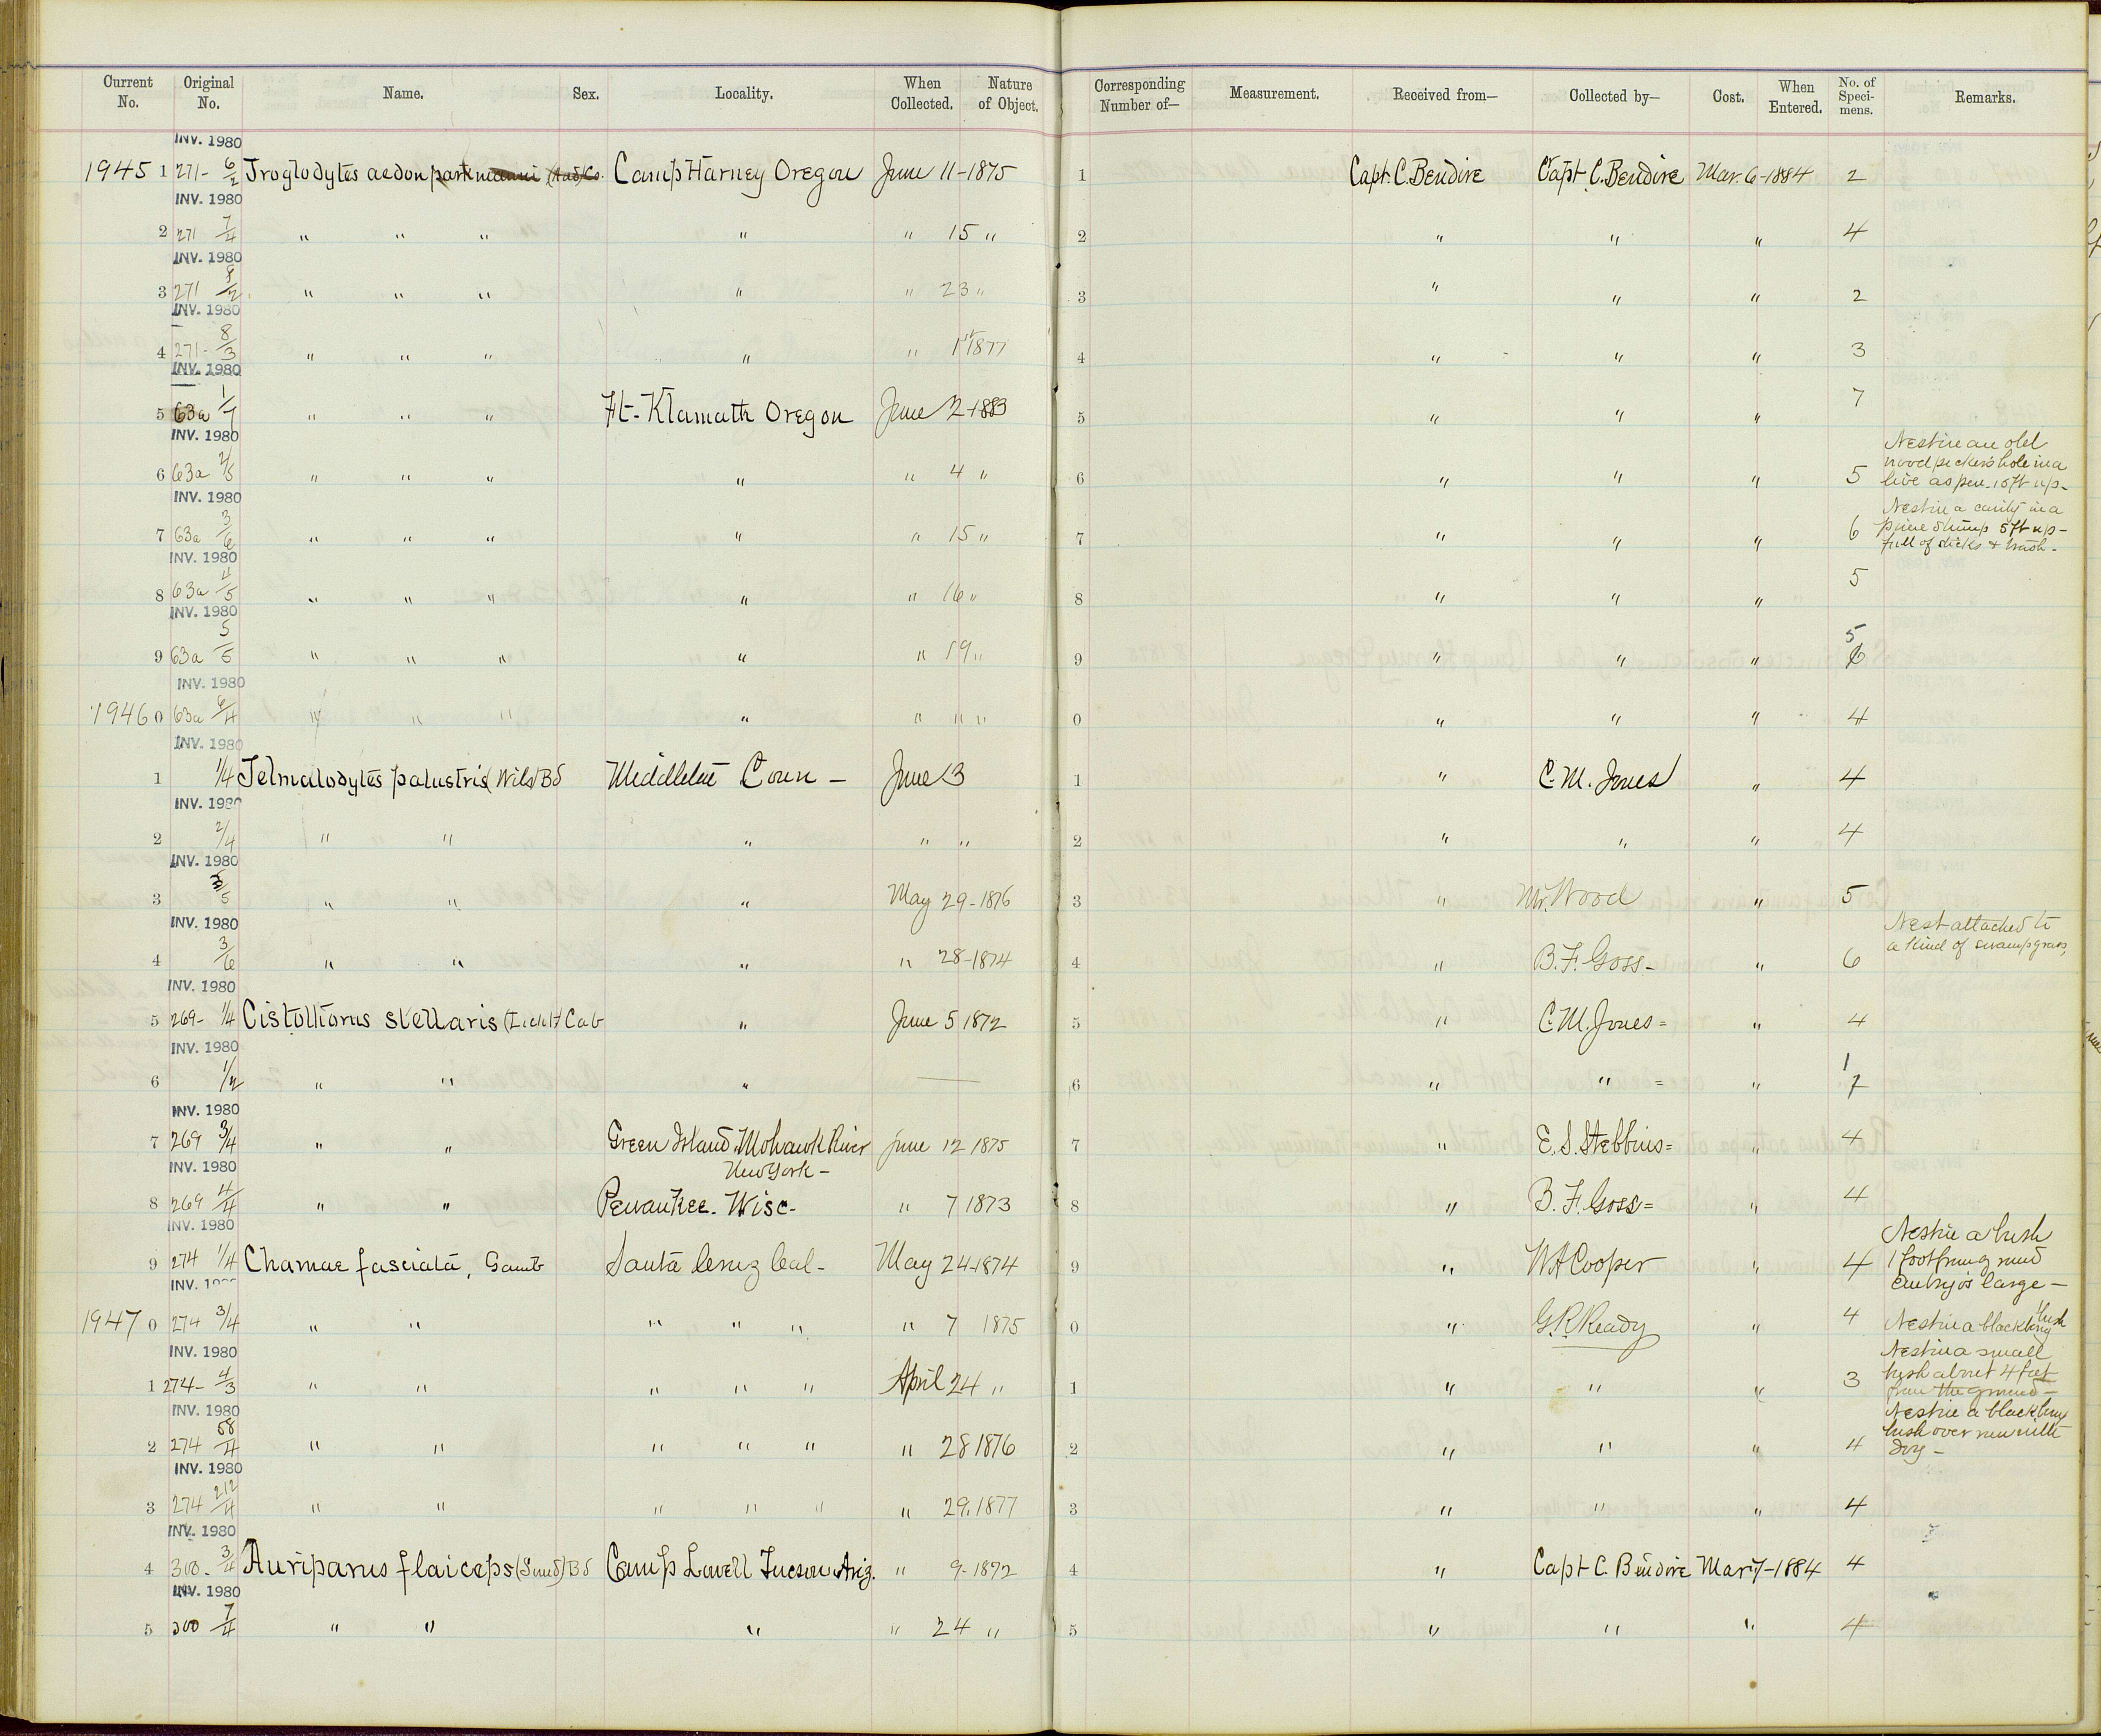 Current No. Original No. Name. Sex. Locality. When Collected. Nature of Object. Corresponding Number of— Measurement. Received from— Collected by— Cost. When Entered. No. of Speci-mens. Remarks.
INV. 1980
1945 1 271- 6/2 Troglodytes aedon parkmanni (Aud) Co. Camp Harney Oregon June 11-1875 1 Capt. C. Bendire Capt. C. Bendire Mar. 6-1884 2
INV. 1980
2 271 7/4 " " " " " 15 " 2 " " " 4
INV. 1980
3 271 8/2 " " " " " 23 " 3 " " " 2
INV. 1980
4 271- 8/3 " " " " " 1st 1877 4 " " " 3
INV. 1980
5 63a 1/7 " " " Ft. Klamath Oregon June 2-1883 5 " " " 7
INV. 1980
6 63a 2/5 " " " " " 4 " 6 " " " 5 Nest in an old woodpeckers hole in a live aspen. 10 ft up-
INV. 1980
7 63a 3/6 " " " " " 15 " 7 " " " 6 Nest in a cavity in a pine stump 5 ft up- full of sticks & trash-
INV. 1980
8 63a 4/5 " " " " " 16 " 8 " " " 5
INV. 1980
9 63a 5/5 " " " " " 19 " 9 " " " 5 6
INV. 1980
1946 0 63a 6/4 " " " " " " " 0 " " " 4
INV. 1980
1 1/4 Telmatodytes palustris (Wils) Bd Conn - June 3 1 " C. M. Jones " 4
INV. 1980
2 2/4 " " " " " 2 " " " 4
INV. 1980
3 3/5 " " " May 29-1876 3 " Mr. Wood " 5
INV. 1980
4 3/6 " " " " 28-1874 4 " B. F. Goss- " 6 Nest attached to a kind of swamp grass,
INV. 1980
5 269- 1/4 Cistothorus stellaris (Licht) Cab " June 5 1872 5 " C. M. Jones = " 4
INV. 1980
6 1/2 " " " — 6 " " = " 1
INV. 1980
7 269 3/4 " " Green Island Mohawk River New York - June 12 1875 7 " E. S. Stebbins = " 4
INV. 1980
8 269 4/4 " " Pewaukee. Wisc- " 7 1873 8 " B. F. Goss = " 4
INV. 1980
9 274 1/4 Chamae fasciata, Gamb Santa Cruz Cal- May 24-1874 9 " W A Cooper " 4 Nest in a bush 1 foot from ground embryos large —
INV. 1980
1947 0 274 3/4 " " " " " " 7 1875 0 " G. R. Ready " 4 Nest in a blackberry bush
INV. 1980
1 274- 4/3 " " " " " April 24 " 1 " " " 3 Nest in a small bush about 4 feet from the ground -
INV. 1980
2 274 58/4 " " " " " " 28 1876 2 " " " 4 Nest in a blackberry bush over run with
INV. 1980
3 274 212/4 " " " " " " 29. 1877 3 " " " 4
INV. 1980
4 300. 3/4 Auriparus flaiceps (Sund) Bd Camp Lowell Tucson Ariz. " 9-1872 4 " Capt C. Bendire Mar 7-1884 4
INV. 1980
5 300 7/4 " " " " 24 " 5 " " " 4